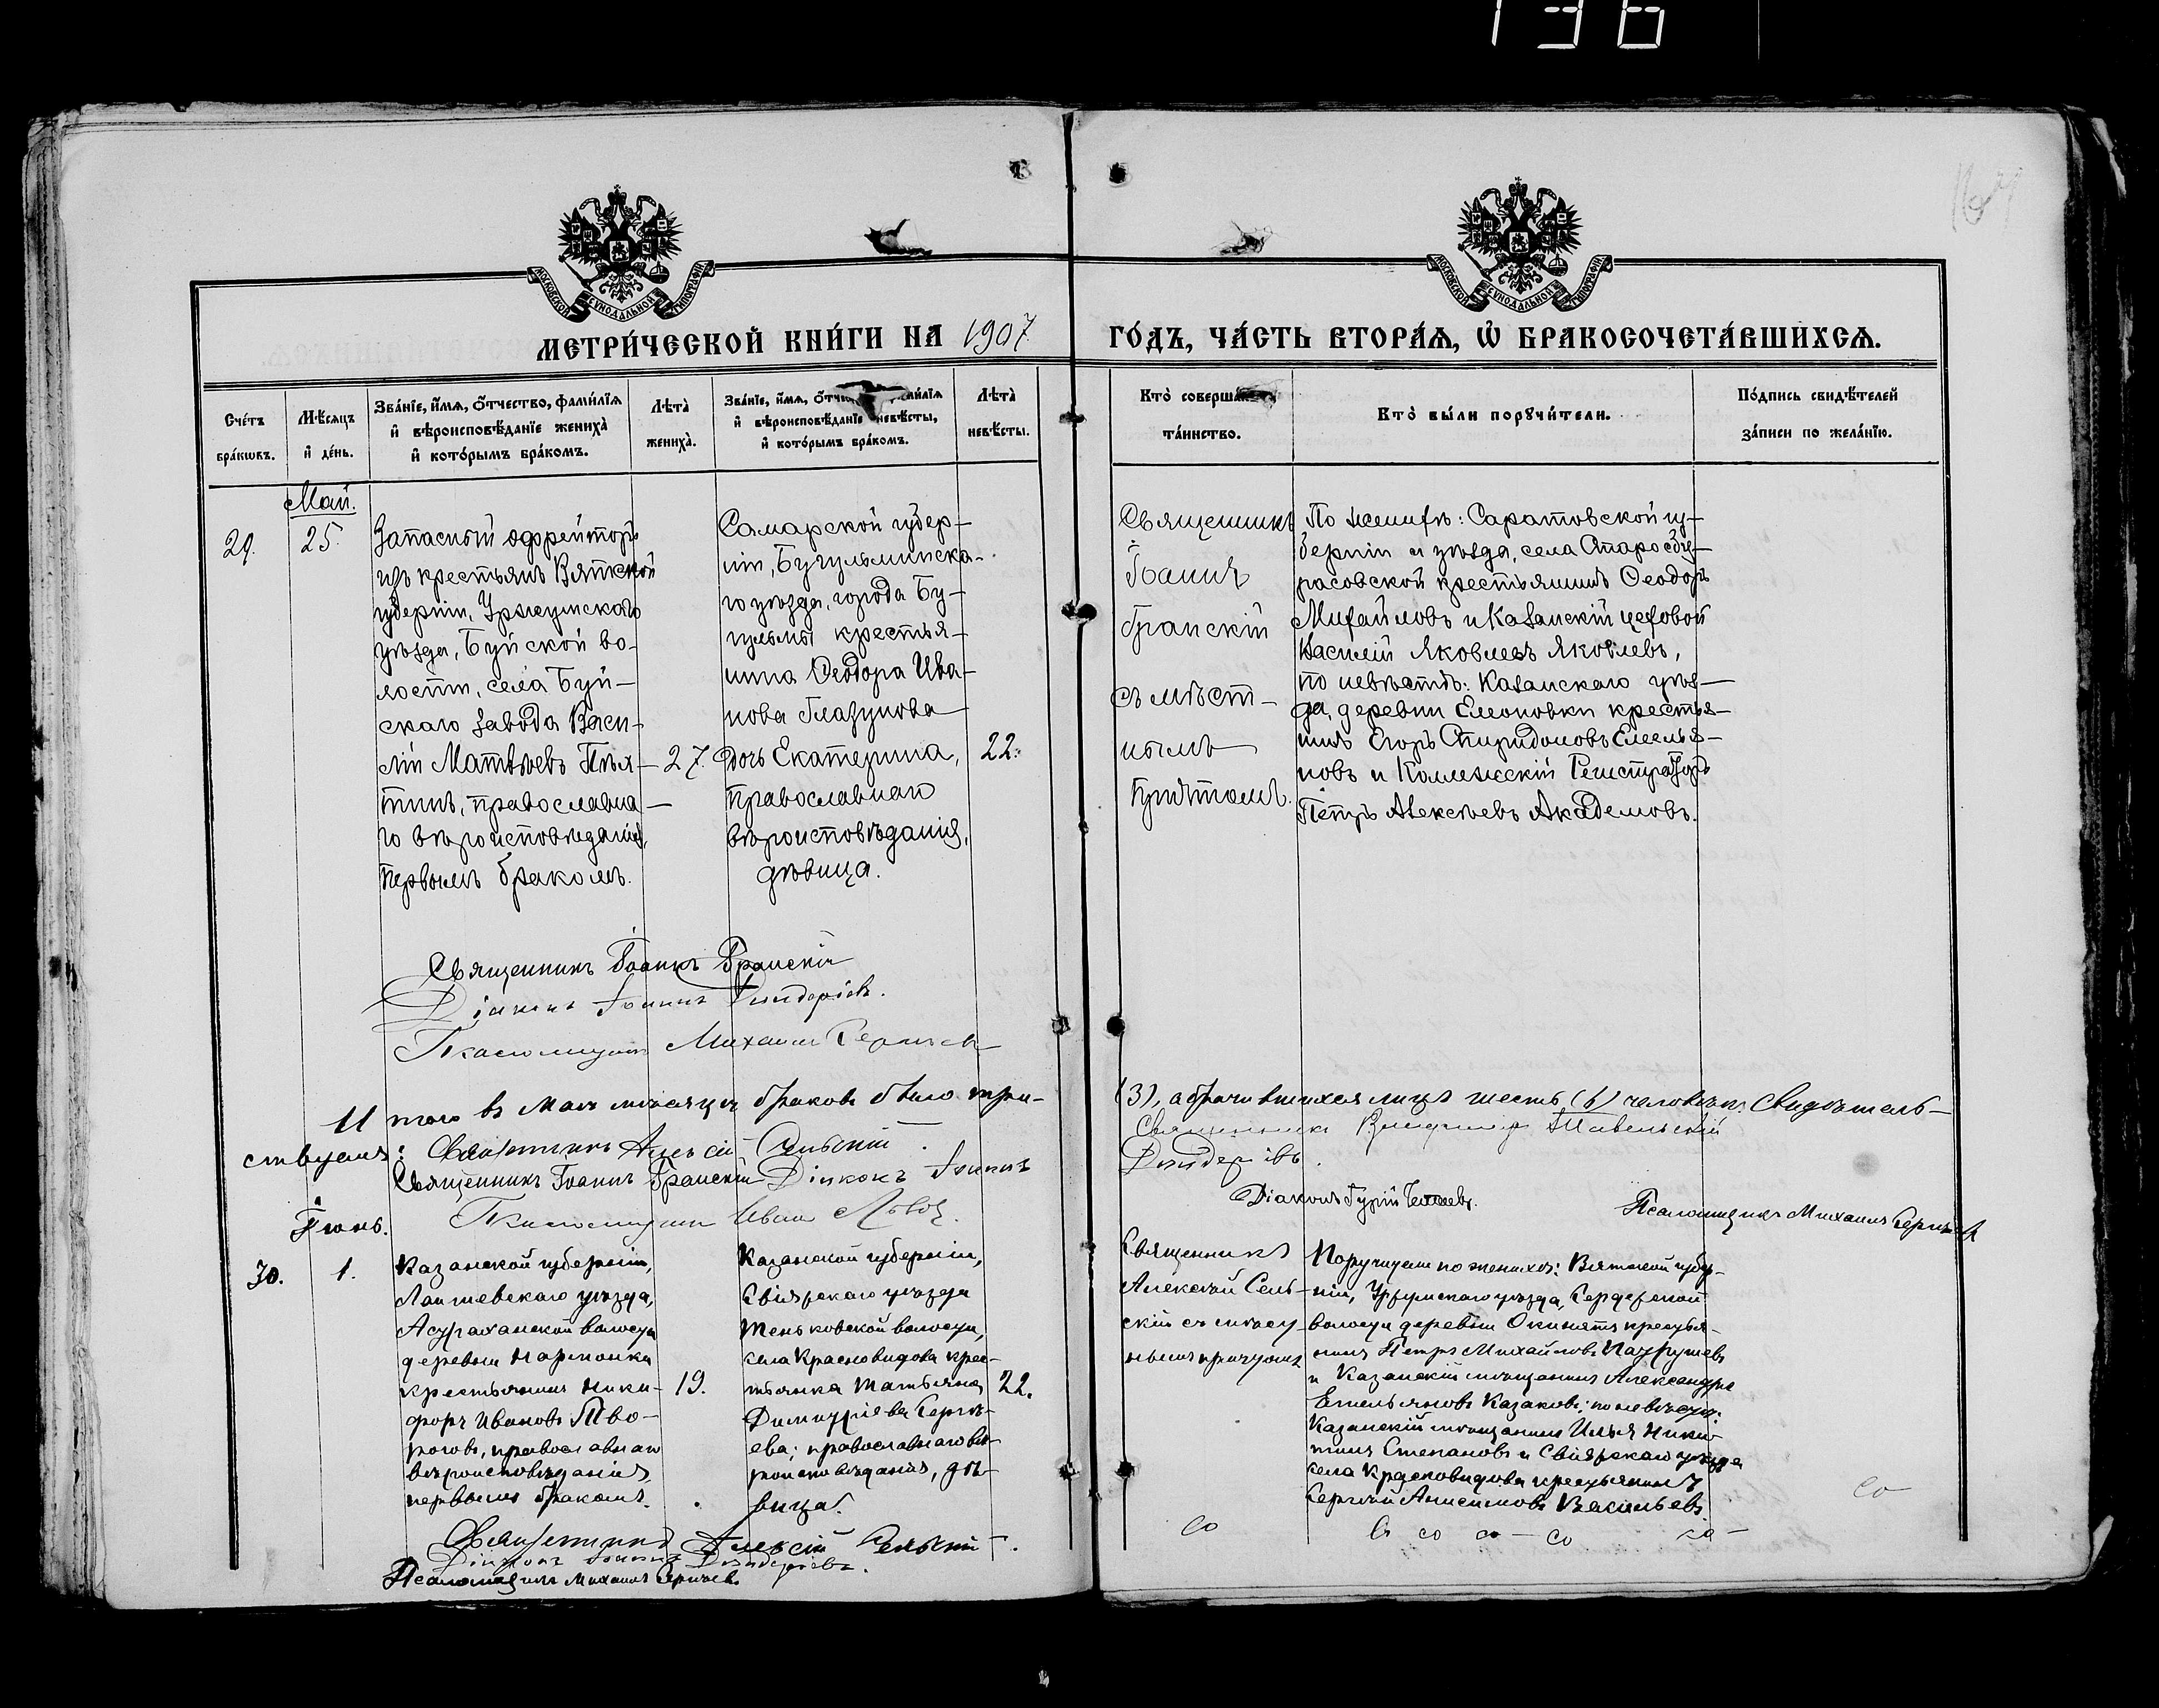 136
167
МОСКОВСКОЙ СѴНОДАЛЬНОЙ ТИПОГРАФІИ
МОСКОВСКОЙ СѴНОДАЛЬНОЙ ТИПОГРАФІИ
МЕТРИ́ЧЕСКОЙ КНИ́ГИ НА 1907 ГО́ДЪ, ЧА́СТЬ ВТОРА́Ѧ, Ѽ БРАКОСОЧЕТА́ВШИХСѦ.
Сче́тъ бра́кωвъ.
Мѣ́сяцъ и҆ де́нь.
Зва́нїе, и҆́мѧ, ѻ҆́тчество, фами́лїѧ
и҆ вѣроисповѣ́данїе жениха̀
и҆ кото́рымъ бра́комъ.
Лѣта̀ жениха̀.
Зва́нїе, и҆́мѧ, ѻ҆́тчество, фами́лїѧ
и҆ вѣроисповѣ́данїе невѣ́сты,
и҆ кото́рымъ бра́комъ.
Лѣта̀ невѣ́сты.
Кто̀ соверша́лъ
та́инство.
Кто̀ бы́ли порꙋчи́тели.
По́дпись свидѣ́телей
за́писи по жела́нїю.
Май.
29.
25.
Запасный ефрейторъ
изъ крестьянъ Вятской
губерніи, Уржумскаго
уѣзда, Буйской во-
лости, села Буй-
скаго завода Васи-
лій Матвѣевъ Пѣя-
тинъ, православна-
го вѣроисповѣданія,
первымъ бракомъ.
27.
Самарской губер-
ніи, Бугульминска-
го уѣзда, города Бу-
гульмы крестья-
нина Ѳеодора Ива-
нова Глазунова
дочь Екатерина,
православнаго
вѣроисповѣданія,
дѣвица.
22.
Священникъ
Іоаннъ
Гранскій
съ мѣст-
нымъ
причтомъ.
По женихѣ: Саратовской гу-
берніи и уѣзда, села
расовской крестьянинъ Ѳеодоръ
Михайловъ и Казанскій цеховой
Василій Яковлевъ Яковлевъ,
по невѣстѣ: Казанскаго уѣз-
да, деревни крестья-
нинъ Егоръ Спиридоновъ Емелья-
новъ и Коллежскій Регистраторъ
Петръ Алексѣевъ Академовъ.
Священникъ Іоаннъ Гранскій
Діаконъ Іоаннъ
Псаломщикъ Михаилъ Сергѣевъ
Итого въ Маѣ мѣсяцѣ браковъ было три-
(3), а брачившихся лицъ шесть (6) человѣкъ. Свидѣтель-
ствуемъ: Священникъ Алексій Сельскій.
Священникъ Владиміръ
Священникъ Іоаннъ Гранскій Діаконъ Іоаннъ
Псаломщикъ Иванъ
Діаконъ Гурій
Псаломщикъ Михаилъ Сергѣевъ
Іюнь.
30.
1.
Казанской губерніи,
Лаишевскаго уѣзда,
Астраханской волости
деревни Нармонки
крестьянинъ Ники-
форъ Ивановъ Тво-
роговъ, православнаго
вѣроисповѣданія
первымъ бракомъ.
19.
Казанской губерніи,
Свіяжскаго уѣзда
Теньковской волости,
села Красновидова крес-
тьянка Татьяна
Димитріева Сергѣ-
ева; православнаго вѣ-
роисповѣданія, дѣ-
вица.
22.
Священникъ
Алексѣй Сель-
скій съ мѣст-
нымъ причтомъ
Поручители по женихѣ: Вятской губер-
ніи, Уржумскаго уѣзда, Сердежской
волости деревни крестья-
нинъ Петръ Михайловъ
и Казанскій мѣщанинъ Александръ
Емельяновъ Казаковъ; по невѣстѣ:
Казанскій мѣщанинъ Илья Ники-
тинъ Степановъ и Свіяжскаго уѣзда
села Красновидова крестьянинъ
Сергѣй Анисимовъ Васильевъ.
Священникъ Алексій Сельскій.
Діаконъ Іоаннъ
Псаломщикъ Михаилъ Сергѣевъ